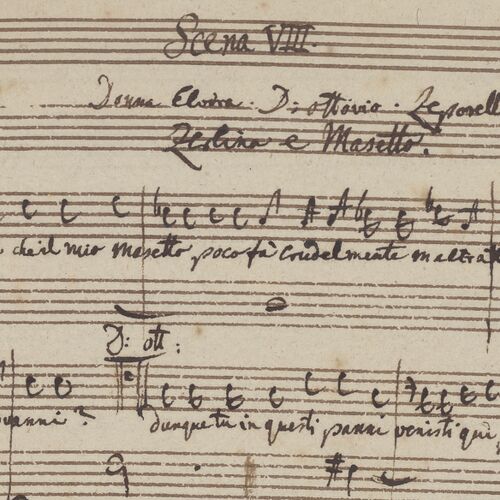 Scena VIII.
Donna Elvira. D: ottavio. Leporell
Zerlina e Masetto.
che il mio Masetto poco fà crudelmente maltrat
D: ott:
vanni? dunque tu in questi panni venisti quì,